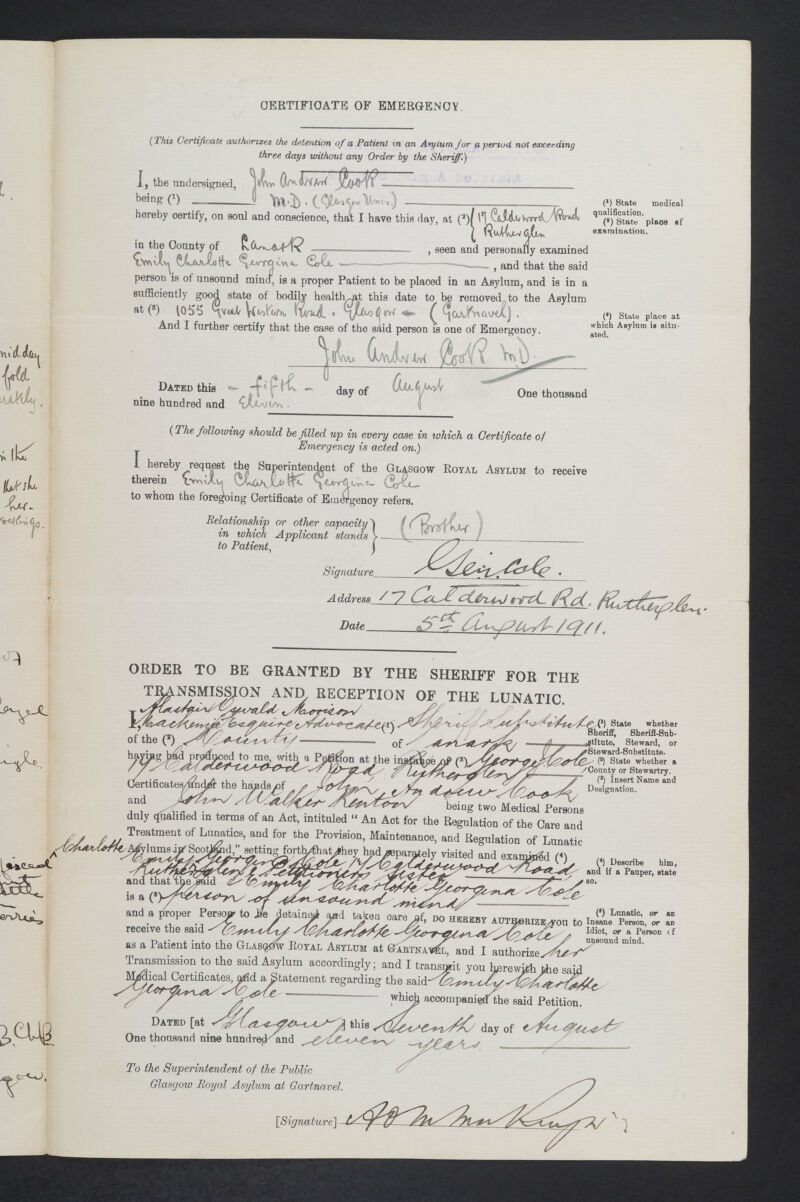 CERTIFICATE OF EMERGENCY.
(This Certificate authorizes the detention of a Patient in an Asylum for a period not exceeding
three days without any Order by the Sheriff.)
I, the undersigned, John Andrew Cook
being (¹) M.D. (Glasgow Univ.)
hereby certify, on soul and conscience, that I have this day, at (²) 17 Calderwood Road
Rutherglen
in the County of Lanark , seen and personally examined
Emily Charlotte Georgina Cole , and that the said
person is of unsound mind, is a proper Patient to be placed in an Asylum, and is in a
sufficiently good state of bodily health at this date to be removed to the Asylum
at (³) 1055 Great Western Road. Glasgow - (Gartnavel).
And I further certify that the case of the said person is one of Emergency.
(¹) State medical
qualification.
(²) State place of
examination.
(³) State place at
which Asylum is situ-
ated.
John Andrew Cook M.D.
DATED this - fifth - day of August One thousand
nine hundred and Eleven.
(The following should be filled up in every case in which a Certificate of
Emergency is acted on.)
I hereby request the Superintendent of the GLASGOW ROYAL ASYLUM to receive
therein Emily Charlotte Georgina Cole
to whom the foregoing Certificate of Emergency refers.
Relationship or other capacity
in which Applicant stands
to Patient,
(Brother)
Signature Geo. Cole.
Address 17 Calderwood Rd. Rutherglen.
Date 5th August 1911.
ORDER TO BE GRANTED BY THE SHERIFF FOR THE
TRANSMISSION AND RECEPTION OF THE LUNATIC.
Alastair Oswald Morison
I, Mackenzie Esquire Advocate (¹) Sheriff Substitute
of the (²) County of Lanark
having had produced to me, with a Petition at the instance of (³) George Cole
17 Calderwood Road Rutherglen
Certificates under the hands of John Andrew Cook
and John Walker Renton being two Medical Persons
duly qualified in terms of an Act, intituled "An Act for the Regulation of the Care and
Treatment of Lunatics, and for the Provision, Maintenance, and Regulation of Lunatic
Asylums in Scotland," setting forth that they had separately visited and examined (⁴)
Charlotte
Emily Georgina Cole 17 Calderwood Road
Rutherglen Petitioners sister
and that the said Emily Charlotte Georgina Cole
is a (⁵) person of unsound mind
and a proper Person to be detained and taken care of, DO HEREBY AUTHORIZE you to
receive the said Emily Charlotte Georgina Cole
as a Patient into the GLASGOW ROYAL ASYLUM at GARTNAVEL, and I authorize her
Transmission to the said Asylum accordingly; and I transmit you herewith the said
Medical Certificates, and a Statement regarding the said Emily Charlotte
Georgina Cole which accompanied the said Petition.
(¹) State whether
Sheriff, Sheriff-Sub-
stitute, Steward, or
Steward-Substitute.
(²) State whether a
County or Stewartry.
(³) Insert Name and
Designation.
(⁴) Describe him,
and if a Pauper, state
so.
(⁵) Lunatic, or an
Insane Person, or an
Idiot, or a Person of
unsound mind.
DATED [at Glasgow] this Seventh day of August
One thousand nine hundred and eleven years.
To the Superintendent of the Public
Glasgow Royal Asylum at Gartnavel.
[Signature] A O M Mackenzie